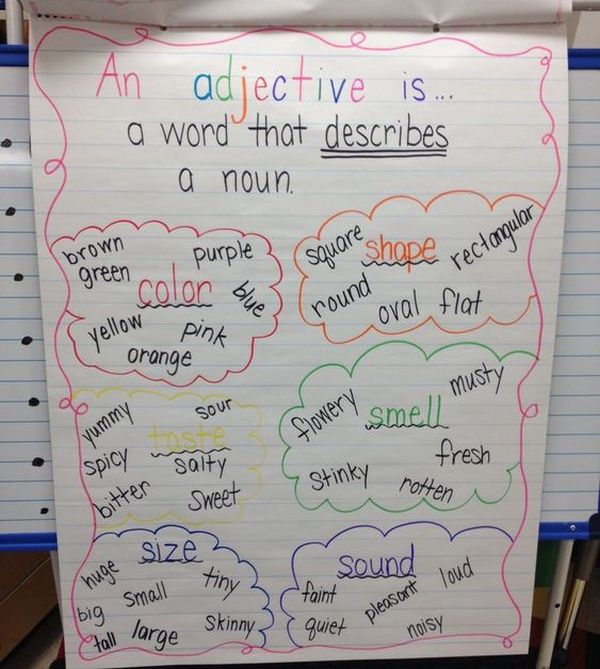 An adjective is...
a word that describes
a noun.
brown
purple
green
color
blue
yellow
pink
orange
square
shape
rectangular
round
oval
flat
yummy
sour
taste
spicy
salty
bitter
sweet
flowery
smell
musty
fresh
stinky
rotten
size
huge
tiny
small
big
tall
large
skinny
sound
loud
faint
pleasant
quiet
noisy